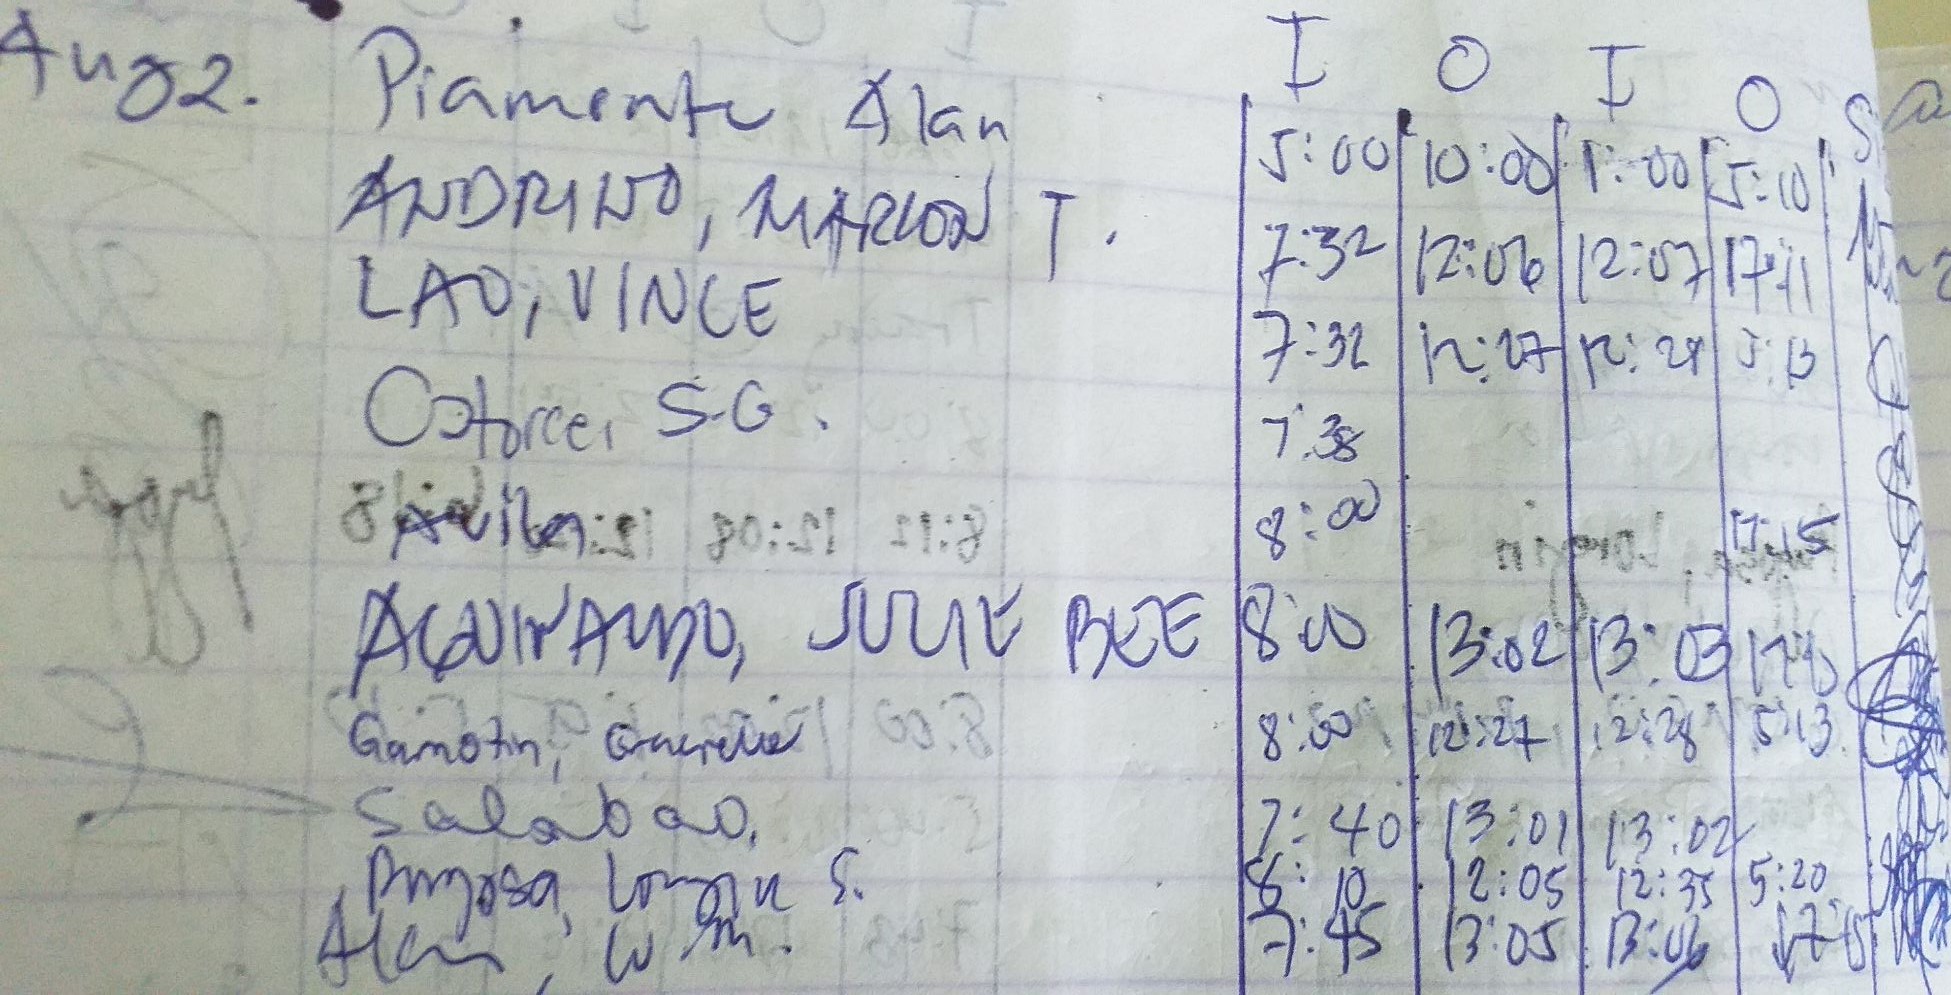 I O I O
Aug 2. Piamonte Alan 5:00 10:00 1:00 5:10
ANDRINO, MARLON T. 7:32 12:06 12:07 17:11
LAO, VINCE 7:32 12:27 12:28 5:13
Catorce, S.G. 7:38
Avila 8:00 17:15
AGUINALDO, JULIE BEE 8:00 13:02 13:03
Gamotin, 8:00 12:27 12:28 5:13
Salabao, 7:40 13:01 13:02
S. 8:10 12:05 12:35 5:20
Alan, W M. 7:45 13:05 13:06 17:15